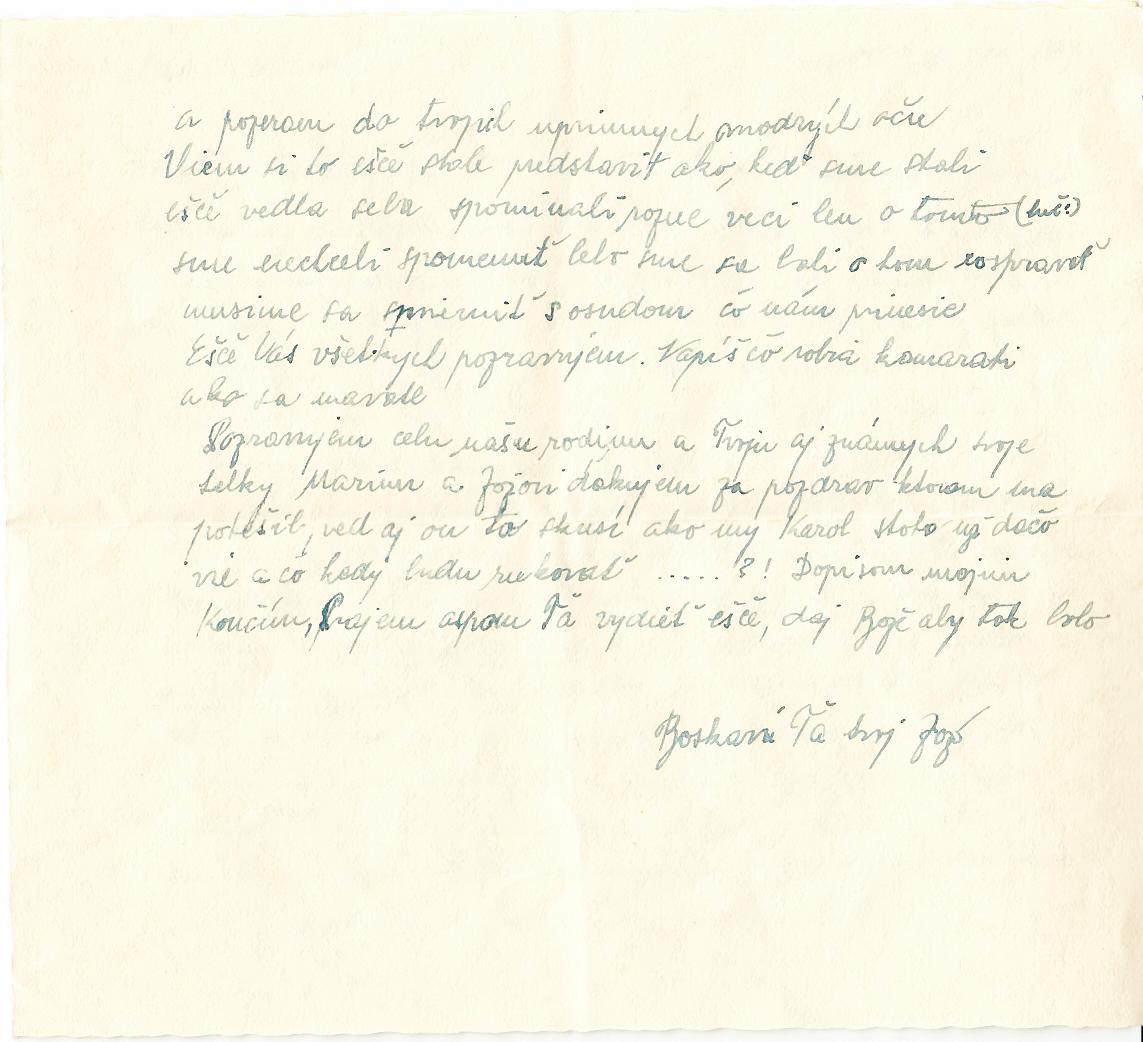 a pozeram do tvojich uprimnych modrých očú
Viem si to ešče stale predstaviť ako, keď sme stali
ešče vedla seba spominali rozne veci len o tomto
sme nechceli spomenuť lebo sme sa bali o tom rospravať
musime sa zmieriť s osudom čo nám prinesie
Ešče Vás všetkych pozravujem. Napíš čo robia kamarati
ako sa mavate
Pozravujem celu našu rodinu a Tvoju aj známych svoje
tetky Marinu a Jožovi ďakujem za pozdrav ktorem ma
potešil, ved aj on to skusí ako my Karol stoho už dačo
vie a čo kedy budu rukovať ..... ?! Dopisom mojim
Končím, Prajem aspom Ťa vydieť ešče, daj Bože aby tak bolo
Boskava Ťa tvoj Jožo